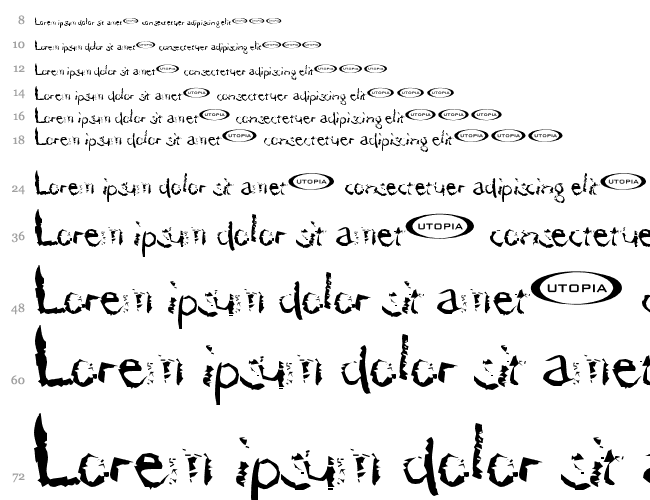 8 Lorem ipsum dolor sit amet UTOPIA consectetuer adipiscing elit UTOPIA UTOPIA UTOPIA
10 Lorem ipsum dolor sit amet UTOPIA consectetuer adipiscing elit UTOPIA UTOPIA UTOPIA
12 Lorem ipsum dolor sit amet UTOPIA consectetuer adipiscing elit UTOPIA UTOPIA UTOPIA
14 Lorem ipsum dolor sit amet UTOPIA consectetuer adipiscing elit UTOPIA UTOPIA UTOPIA
16 Lorem ipsum dolor sit amet UTOPIA consectetuer adipiscing elit UTOPIA UTOPIA UTOPIA
18 Lorem ipsum dolor sit amet UTOPIA consectetuer adipiscing elit UTOPIA UTOPIA UTOPIA
24 Lorem ipsum dolor sit amet UTOPIA consectetuer adipiscing elit UTOPIA
36 Lorem ipsum dolor sit amet UTOPIA consectetue
48 Lorem ipsum dolor sit amet UTOPIA c
60 Lorem ipsum dolor sit amet
72 Lorem ipsum dolor sit a